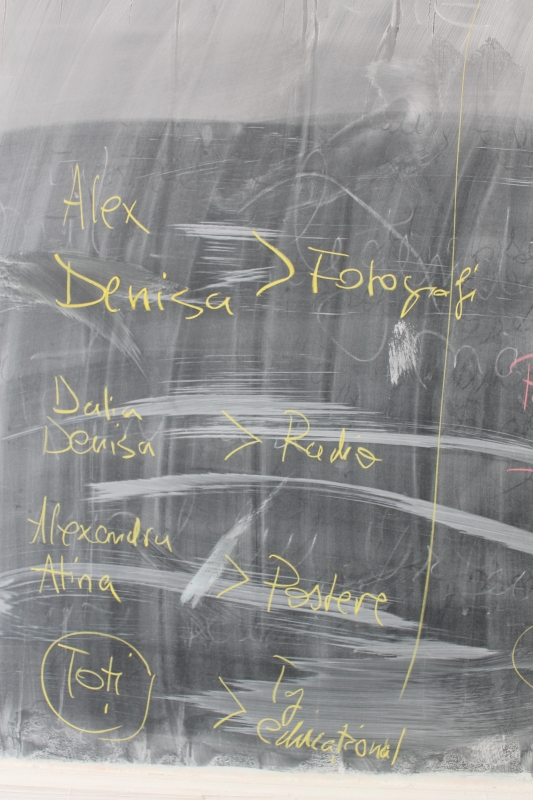 Alex
Denisa > Fotografi
Dalia
Denisa > Radio
Alexandru
Atina > Postere
Toți > Tg
educational